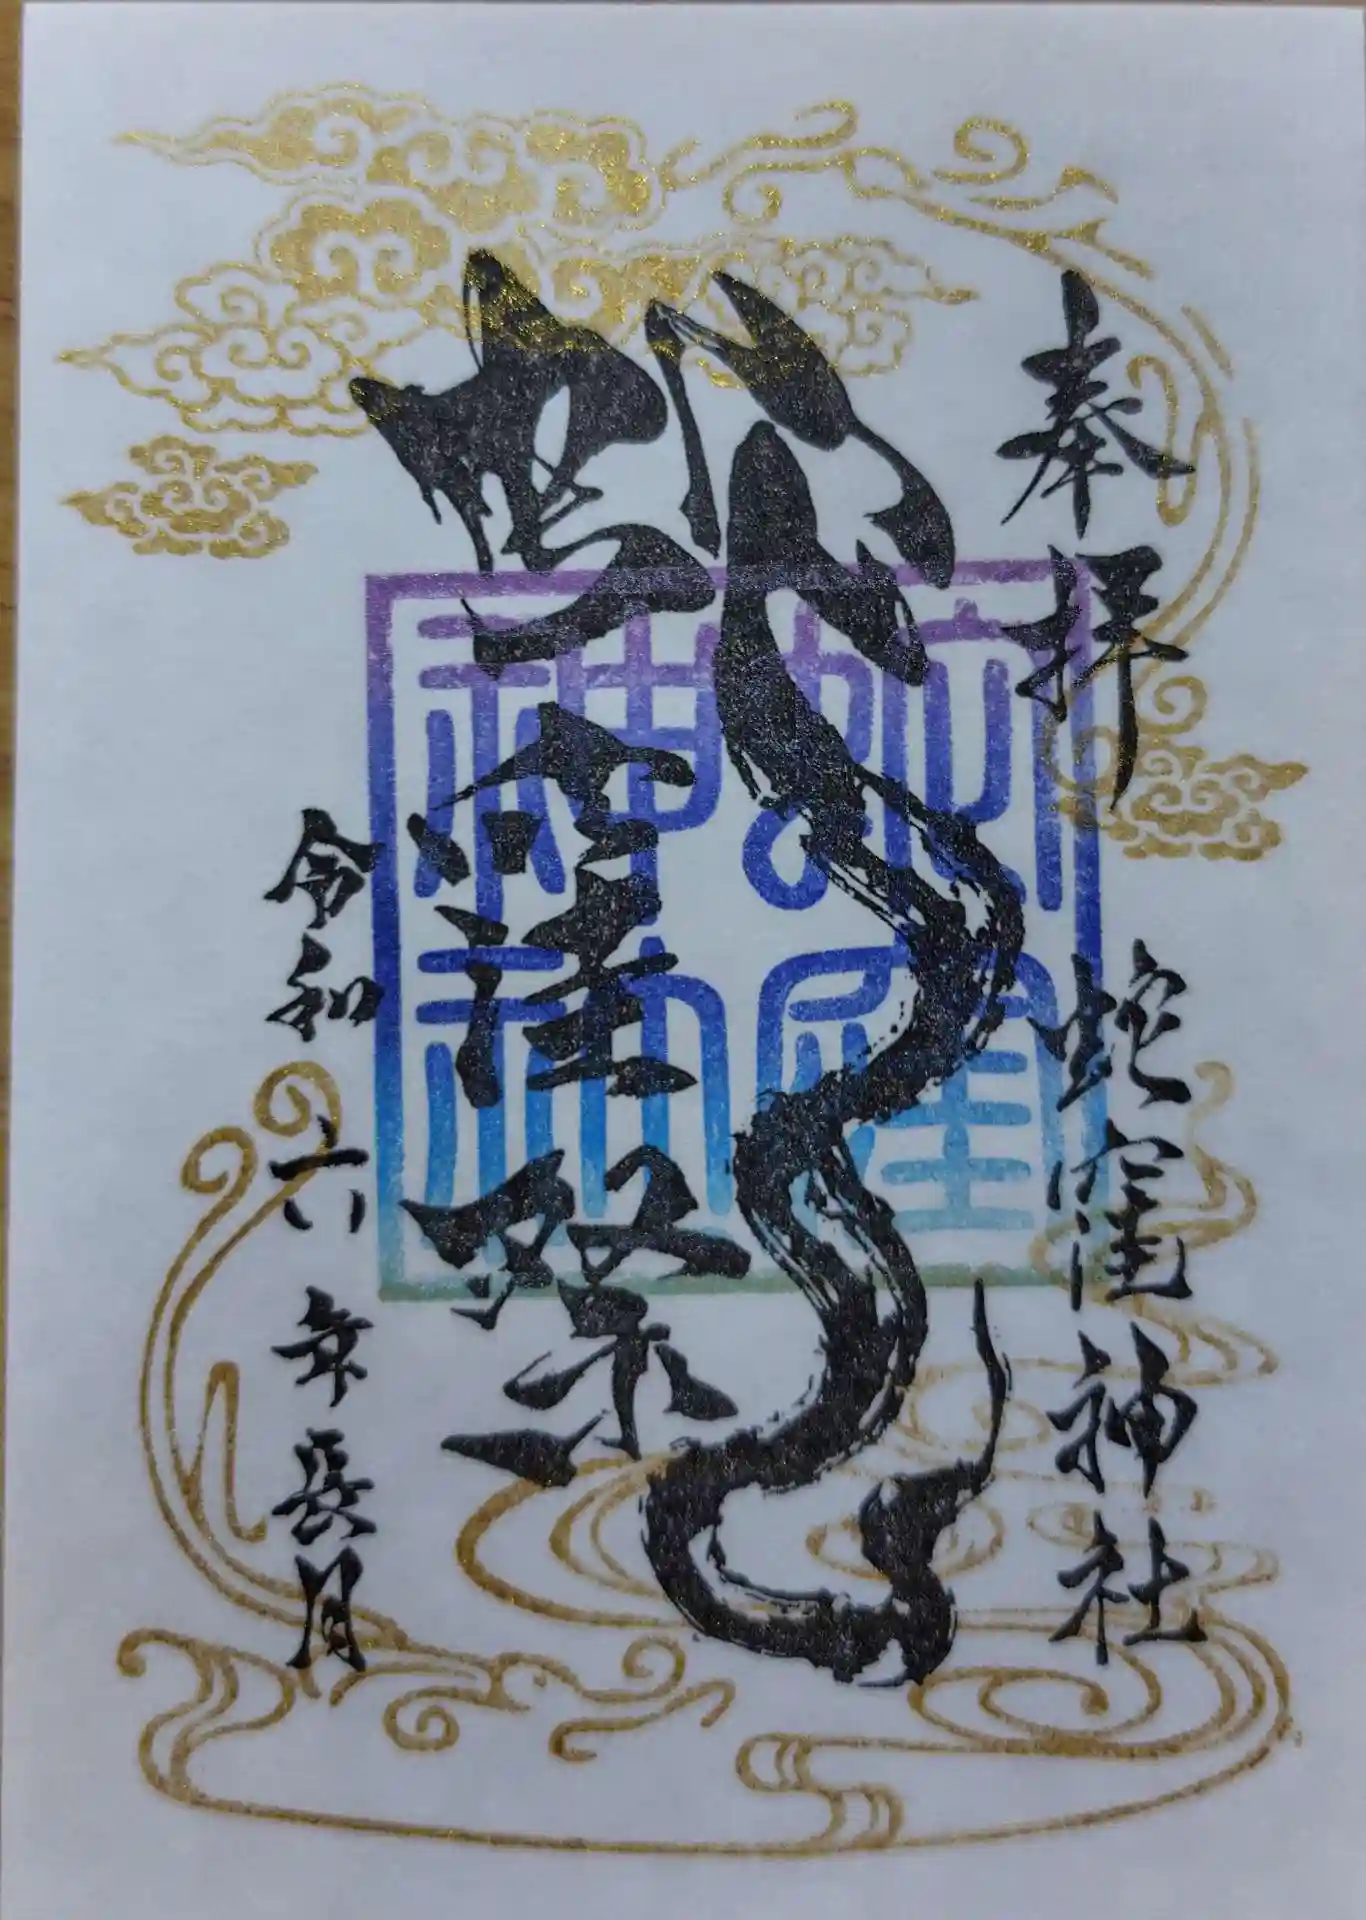 奉拝
蛇窪神社
蛇窪祭
蛇窪
神社
令和六年長月